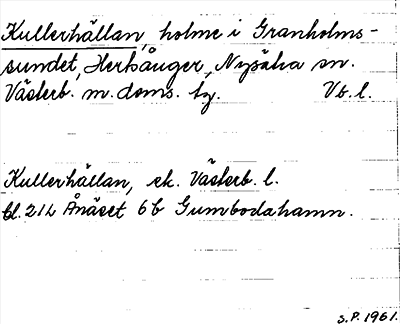 Kullerhällan, holme i Granholms-
sundet, Herksånger, Nysätra sn.
Västerb. m. doms. tg. Vb. l.
Kullerhällan, ek. Västerb. l.
bl. 21L Ånäset 6b Gumbodahamn.
S.P. 1961.